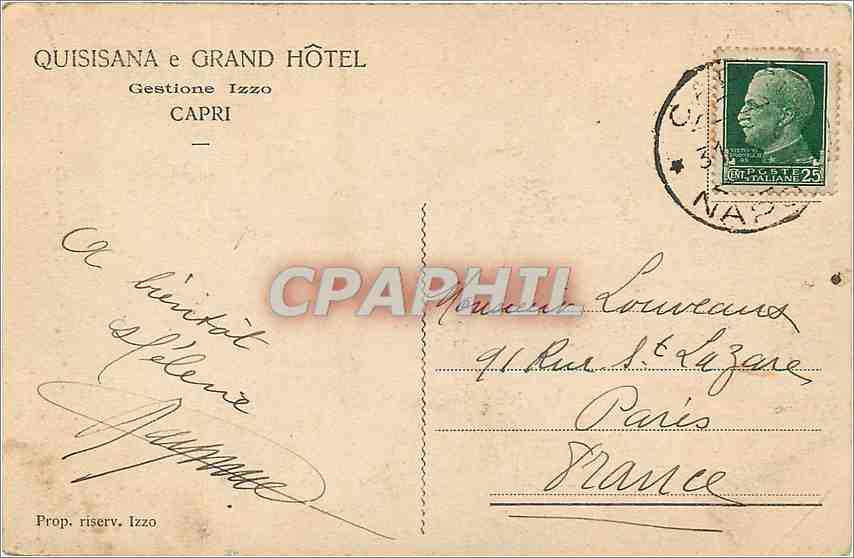 QUISISANA e GRAND HÔTEL
Gestione Izzo
CAPRI
CENT. POSTE ITALIANE 25
NAP
A bientôt
Hélène
CPAPHIL
Monsieur Louveaux
91 Rue St Lazare
Paris
France
Prop. riserv. Izzo